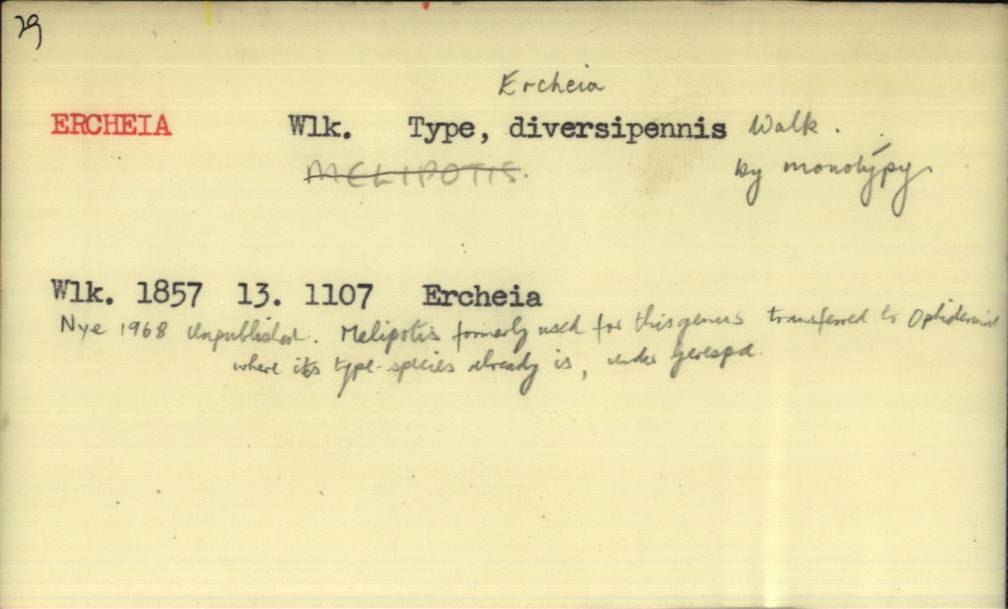 29
Ercheia
ERCHEIA Wlk. Type, diversipennis Walk.
MELIPOTIS. by monotypy
Wlk. 1857 13. 1107 Ercheia
Nye 1968 unpublished. Melipotis formerly used for this genus transferred to
where its type-species already is, under